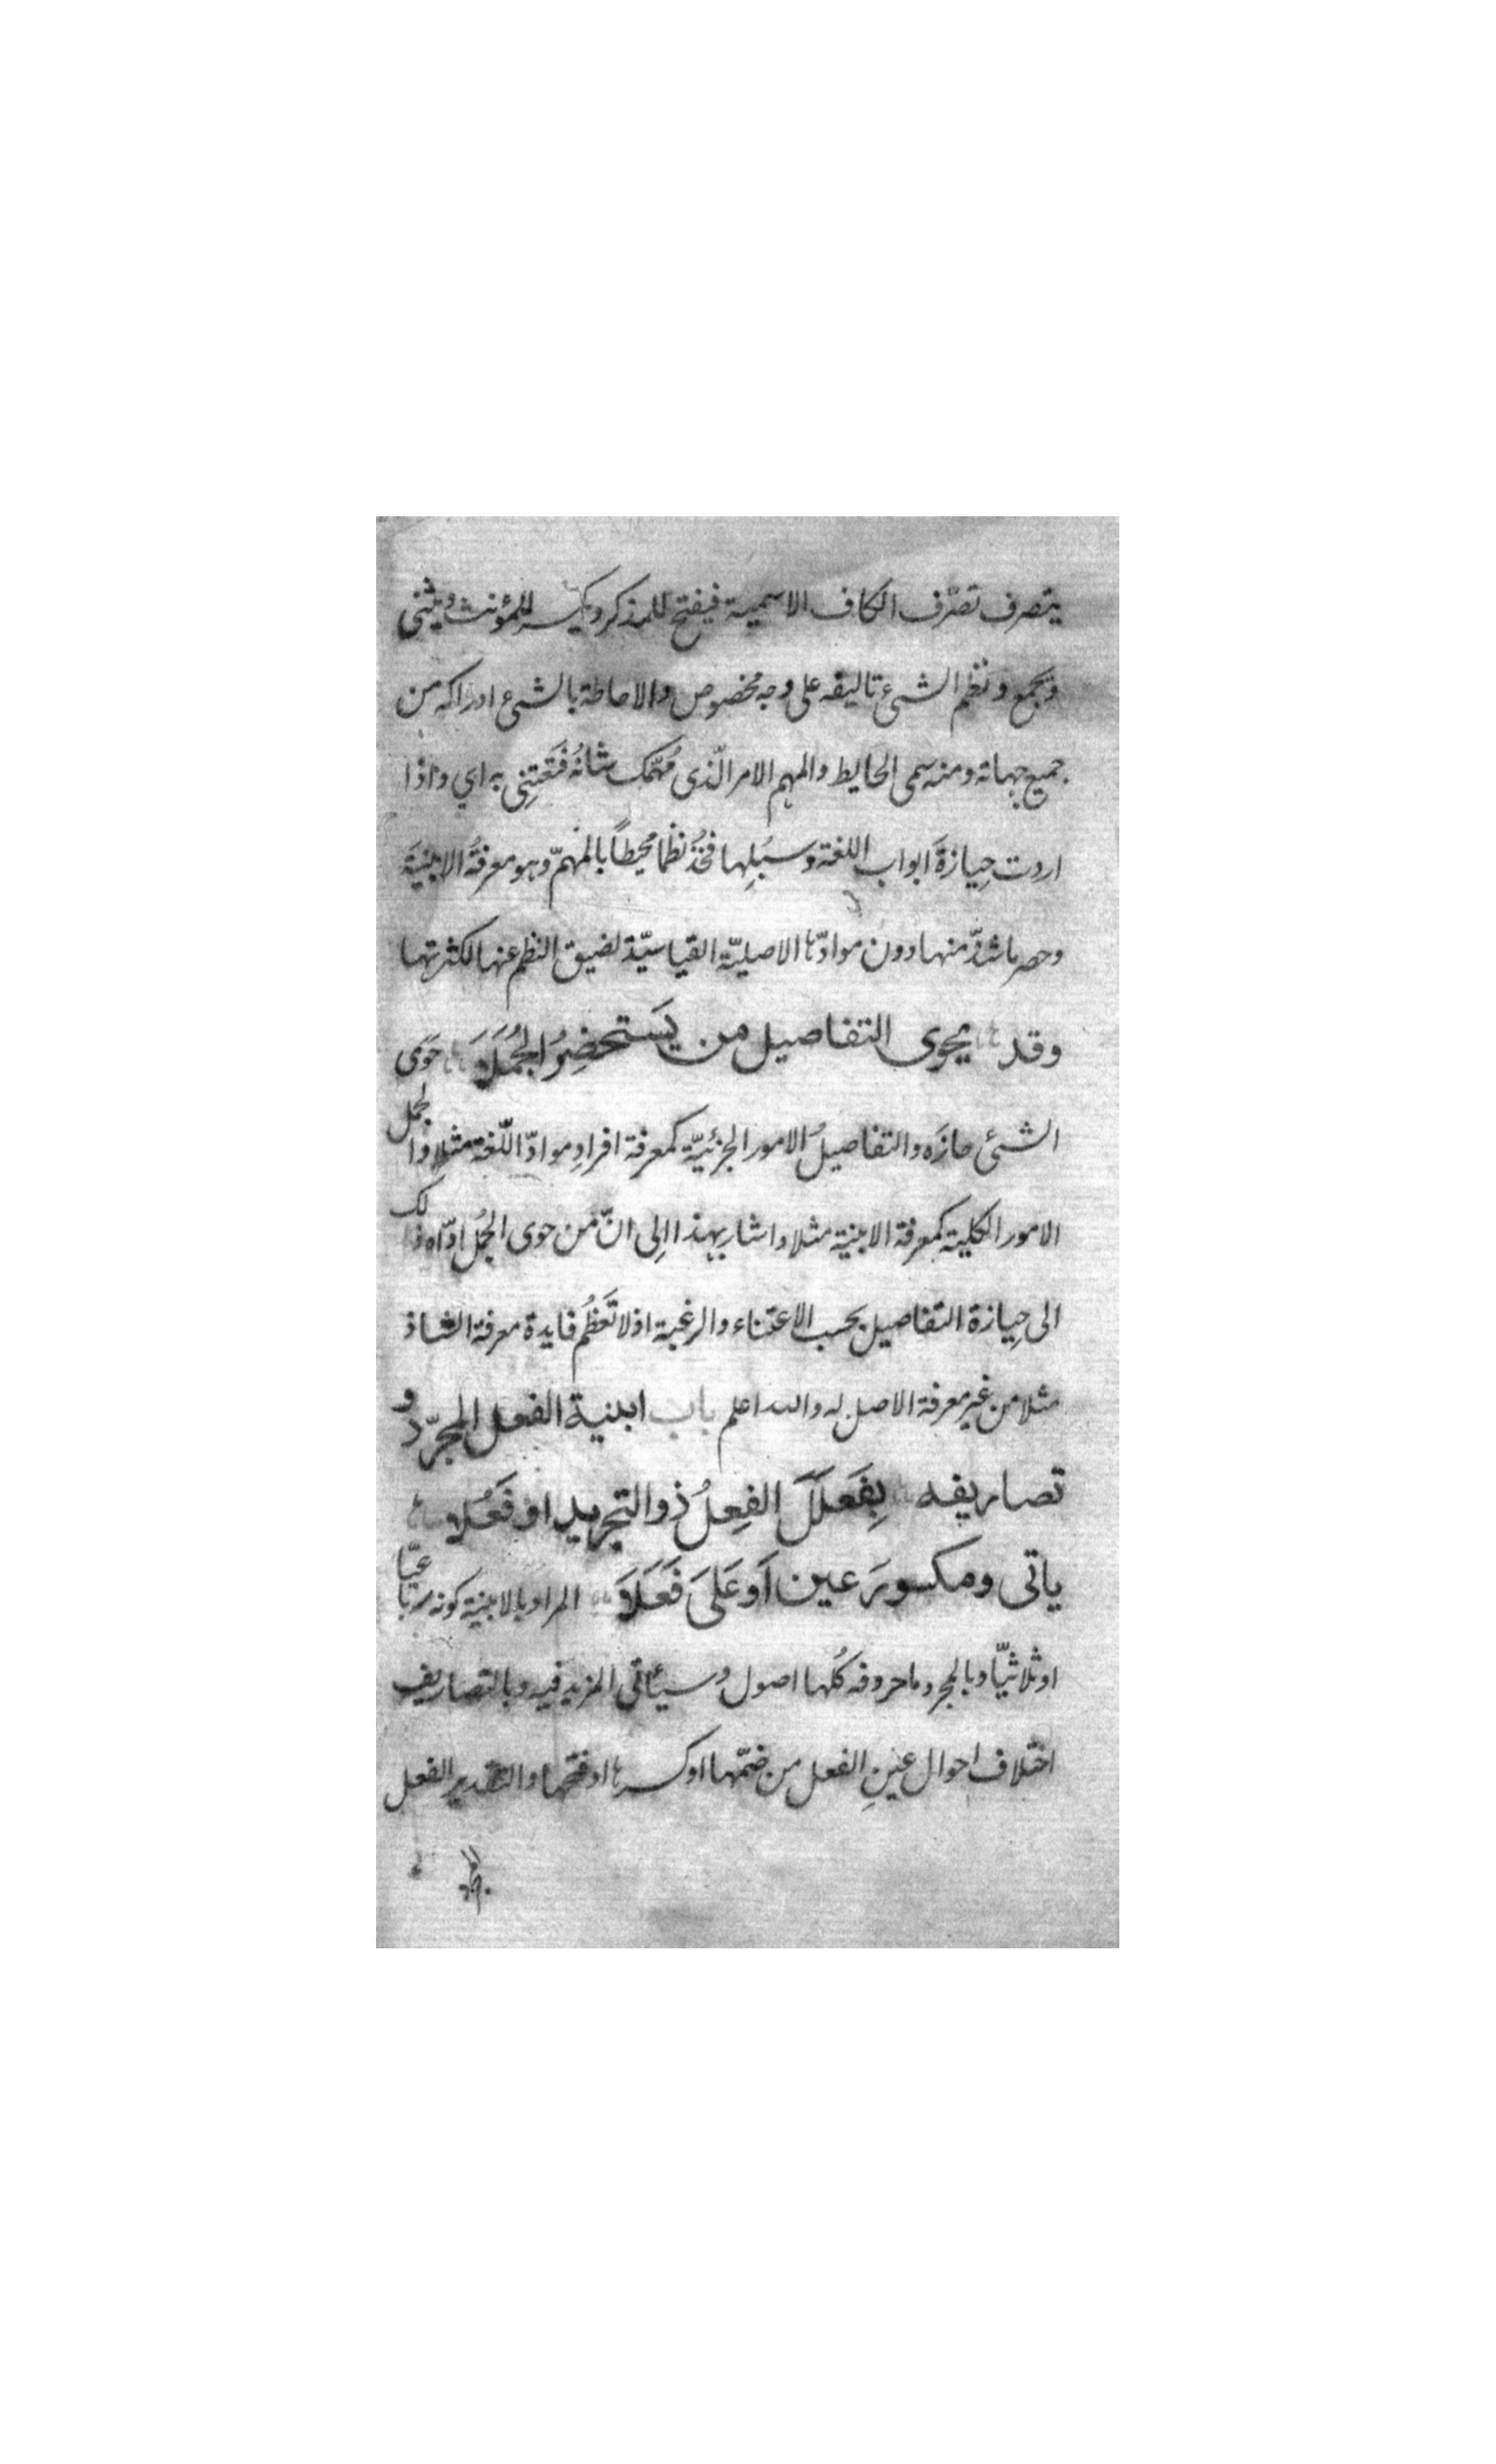 يتصرف تصرّف الكاف الاسمية فيفتح للمذكر ويكسر للمؤنث ويثنى
ويجمع ونظم الشئ تاليفه على وجه مخصوص والاحاطة بالشئ ادراكه من
جميع جهاته ومنه سمى الحايط والمهم الامر الّذى مُهمّك شانُه فَتَعتِنى به اي واذا
اردت حِيازةَ ابواب اللغة وسُبُلِها فخُذ نظما محيطاً بالمهمّ وهو معرفةُ الابنيَةِ
وحصر ما شذّ منها دون موادّها الاصليّة القياسيّة لضيق النظم عنها لكثرتها
وقد يحوى التفاصيل من يَستحضِرُ الجُمَلَا حَوَى
الشئ حازَه والتفاصيلُ الامور الجزئيّة كمعرفة افرادِ موادّ اللّغة مثلا والجمل
الامور الكلية كمعرفة الابنية مثلا واشار بهذا الى انّ من حوى الجُمل ادّاه ذلك
الى حِيازة التفاصيل بحسب الاعتناء والرغبة اذ لا تَعظُم فايدة معرفة الشاذ
مثلا من غير معرفة الاصل له والله اعلم باب ابنية الفعل المجرّد و
تصاريفه بِفَعلَلَ الفِعلُ ذو التجريد او فَعُلا
ياتى ومكسورَ عين اَو عَلىَ فَعَلَا المراد بالابنية كونه رباعيّا
او ثلاثيّا وبالمجرد ما حروفه كُلها اصول وسيئاتى المزيد فيه وبالتصاريف
اختلاف احوال عينِ الفعل من ضمّها او كسرها او فتحها والتقدير الفعل